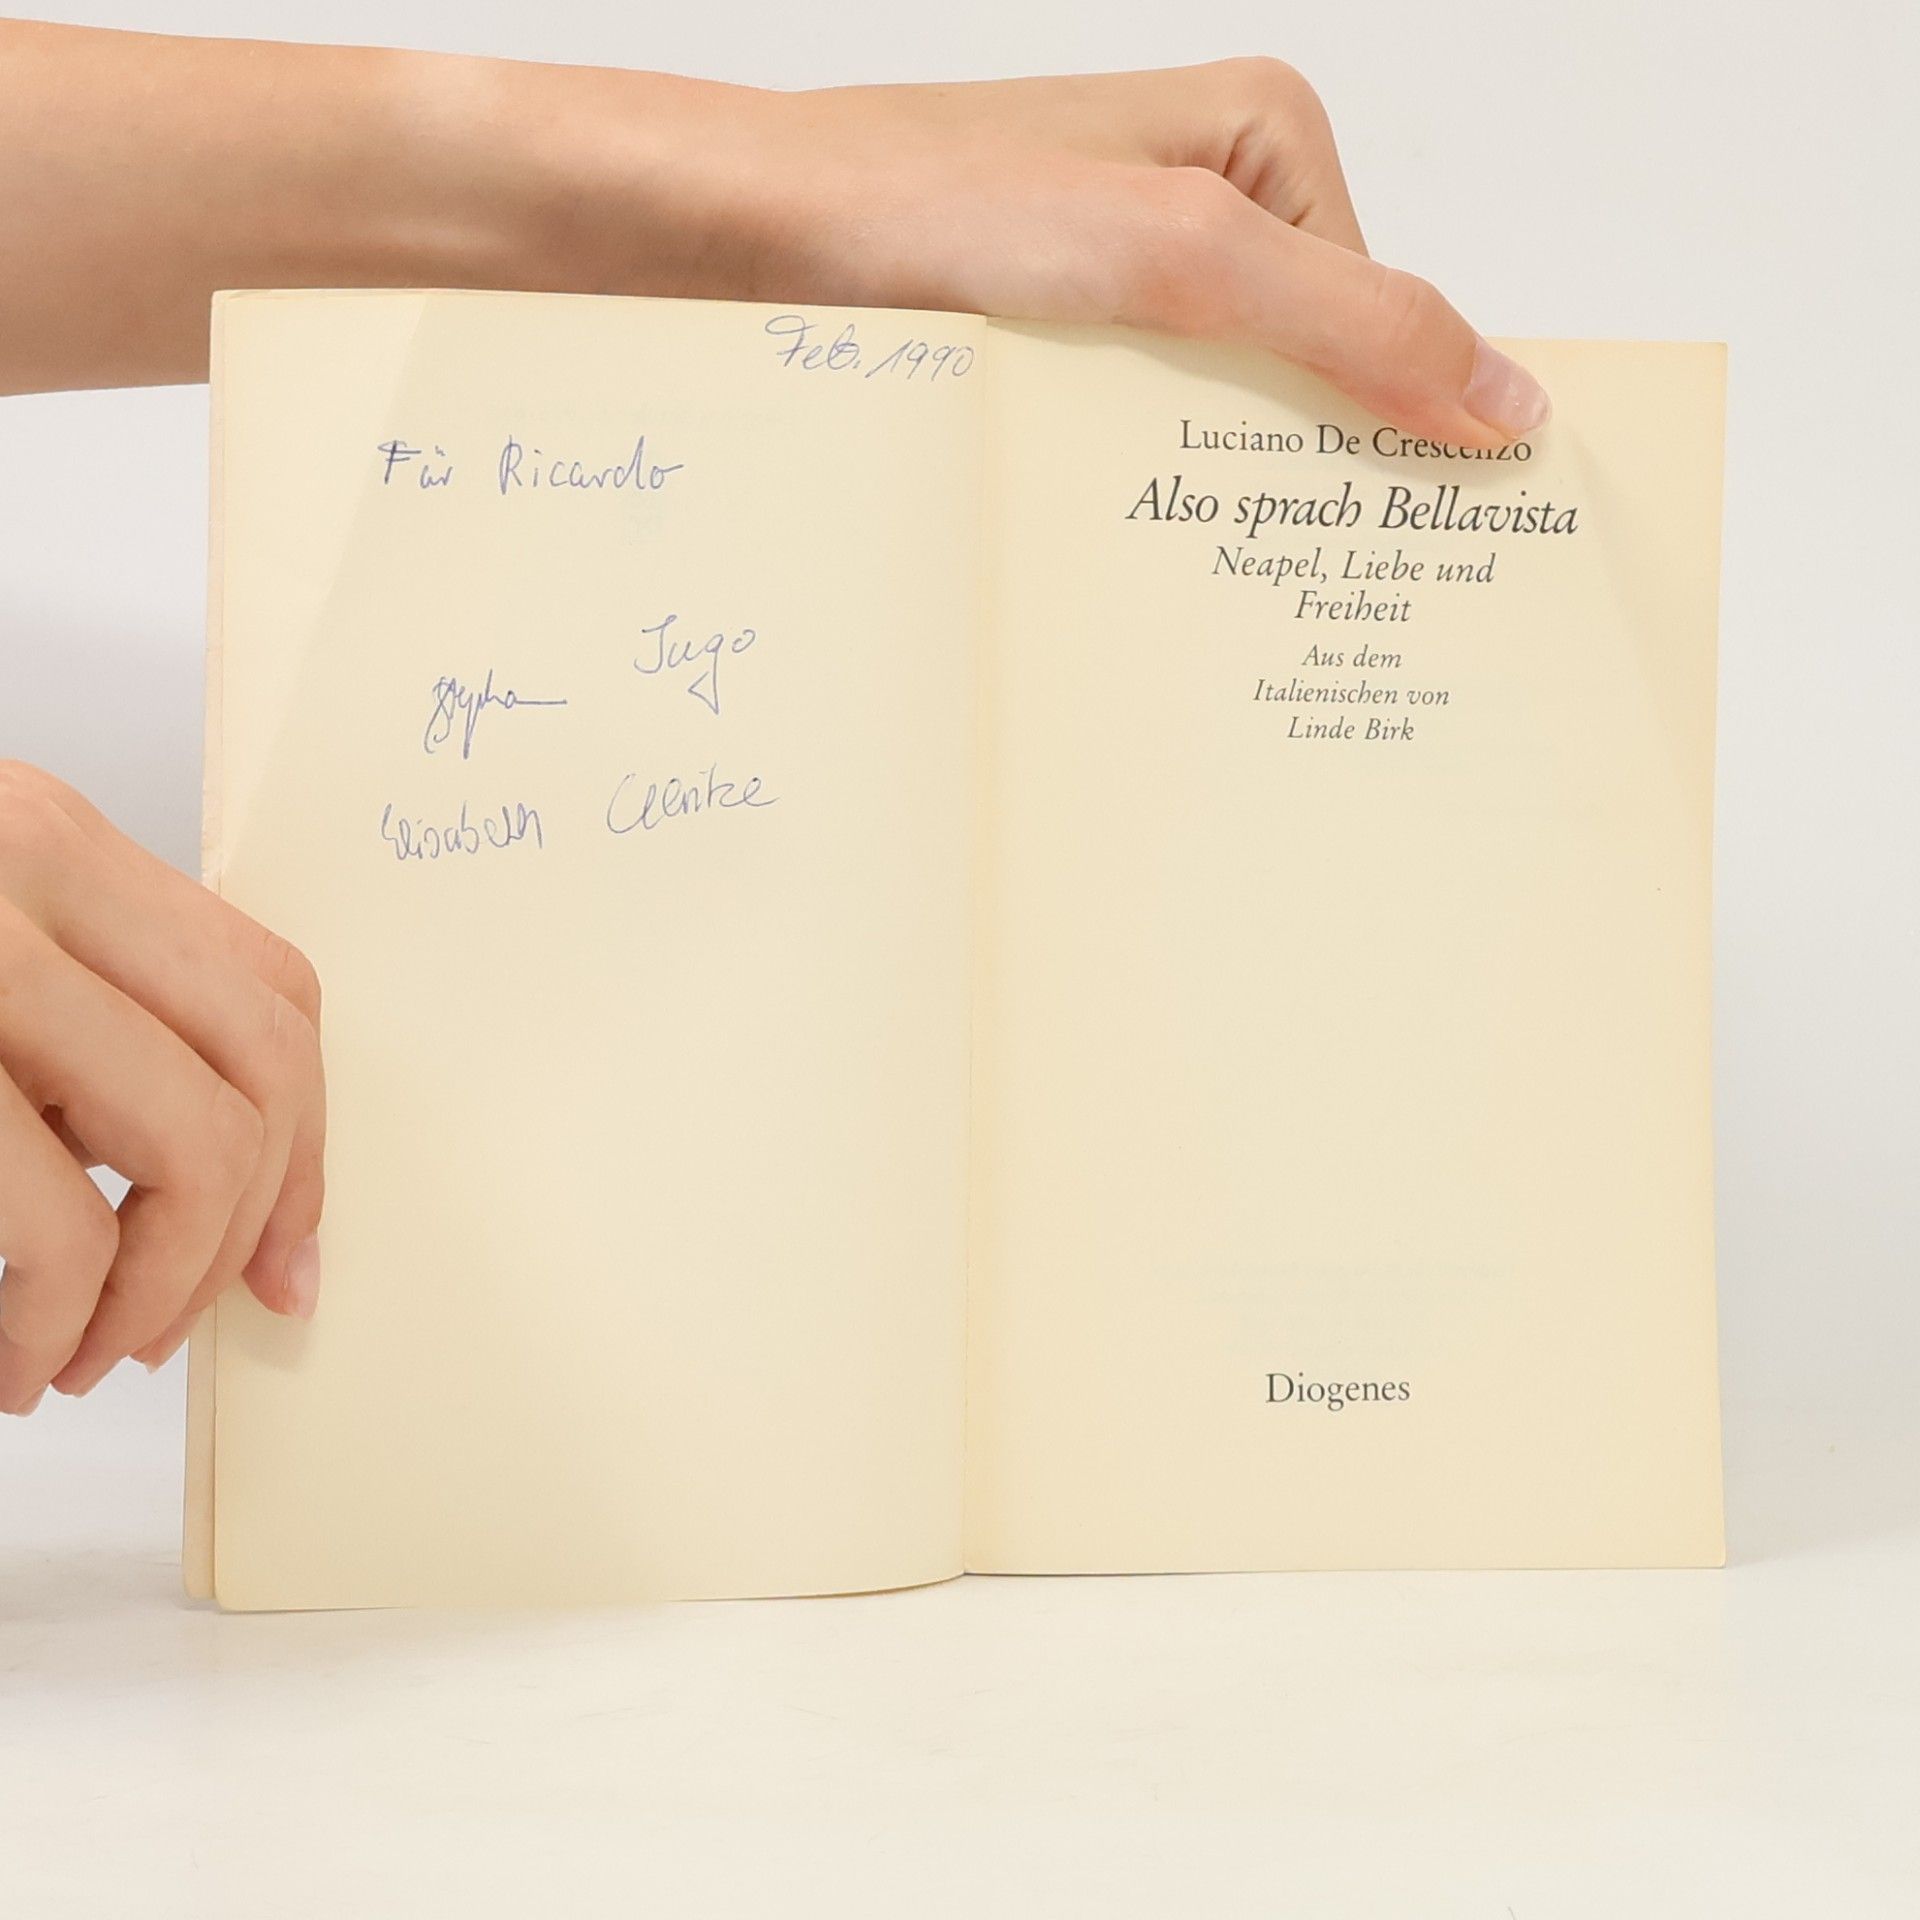 Feb. 1990
Für Ricardo
Ingo
Stephan
Elisabeth Ulrike
Luciano De Crescenzo
Also sprach Bellavista
Neapel, Liebe und
Freiheit
Aus dem
Italienischen von
Linde Birk
Diogenes